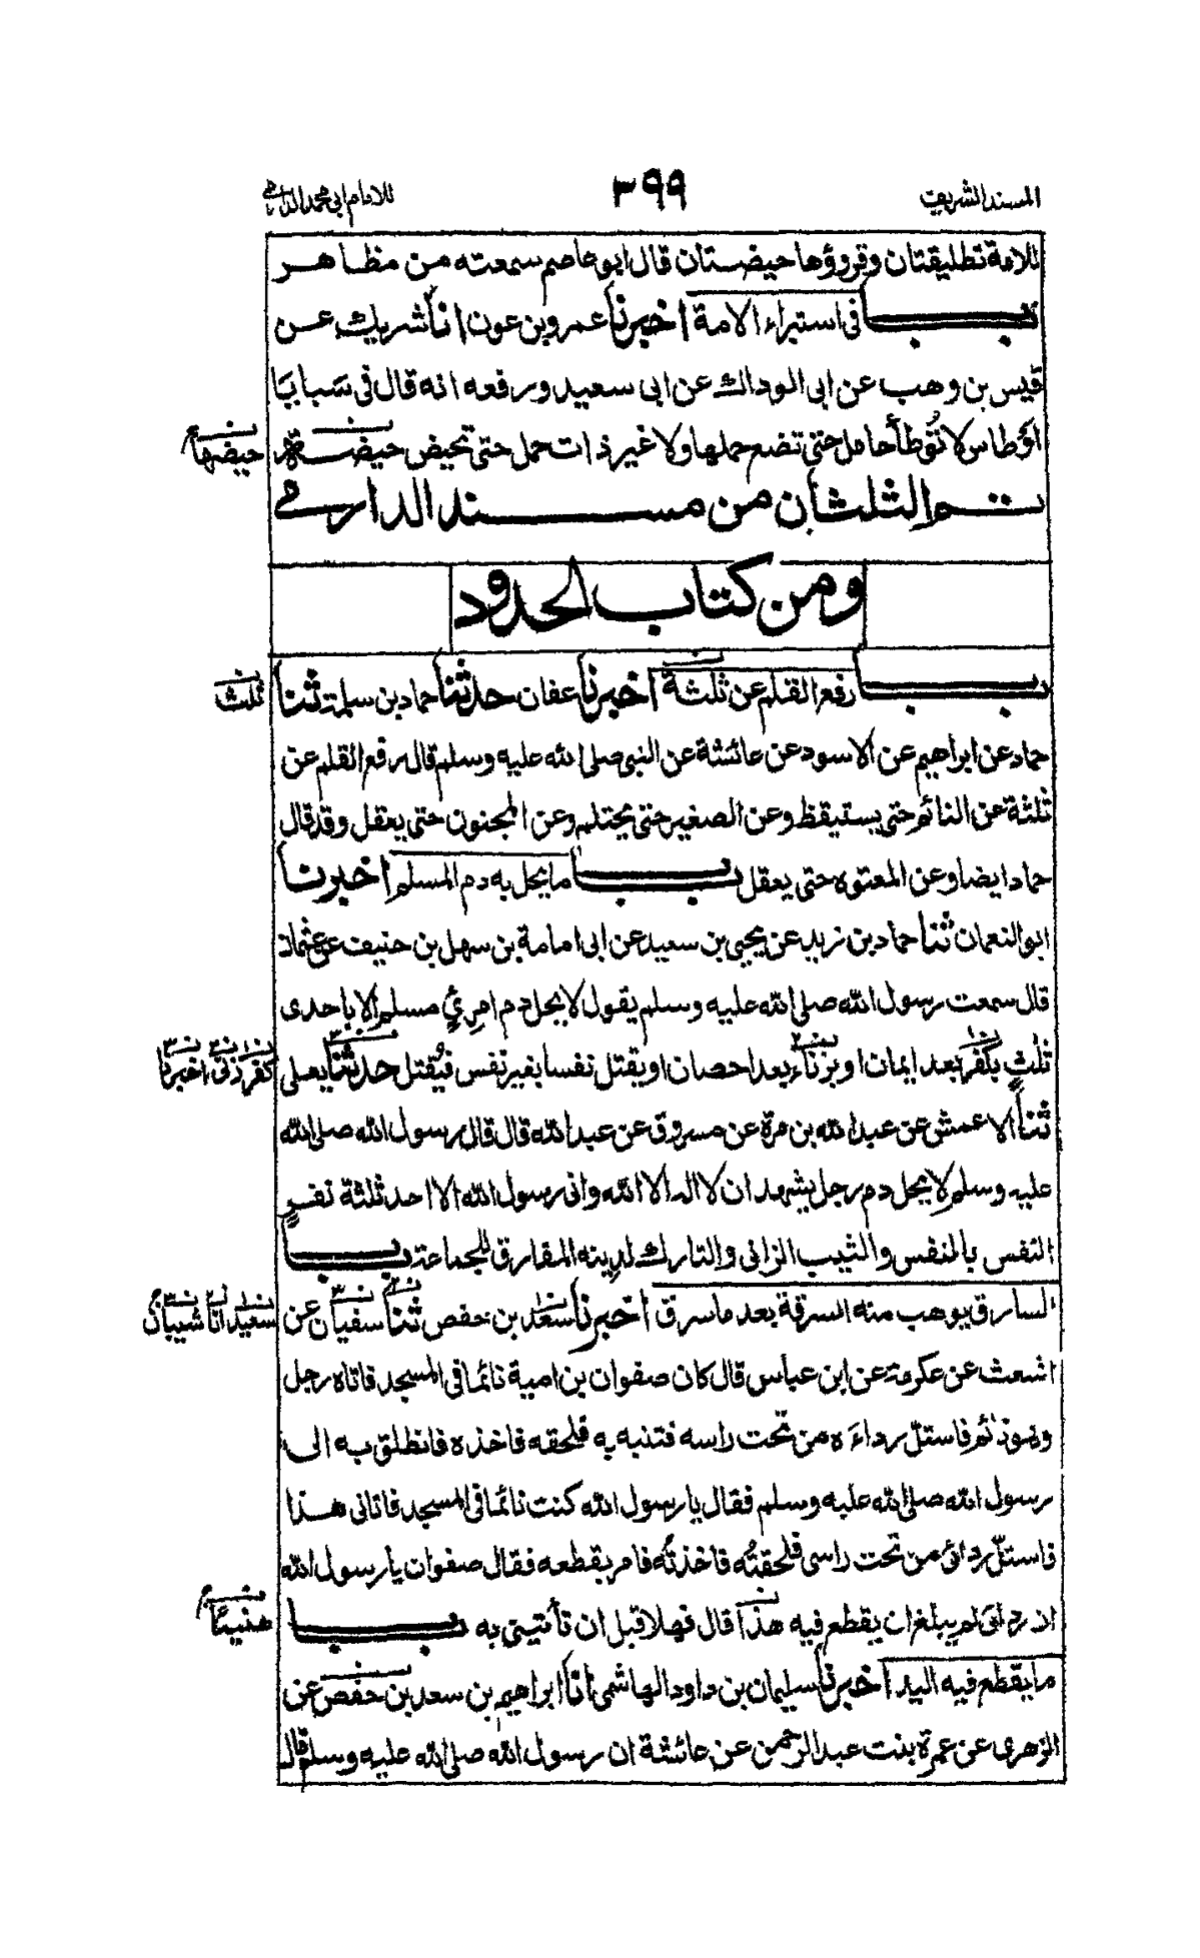 المسند الشريف ٣٩٩ للامام ابى محمد الدارمى
للامة تطليقتان وقروؤها حيضتان قال ابو عاصم سمعته من مظاهر
باب فى استبراء الامة اخبرنا عمرو بن عون انا شريك عن
قيس بن وهب عن ابى الوداك عن ابى سعيد ورفعه انه قال فى سبايا
اوطاس لا تُوطأ حامل حتى تضع حملها ولا غير ذات حمل حتى تحيض حيضة
حيضها
تم الثلثان من مسند الدارمى
ومن كتاب الحدود
باب رفع القلم عن ثلثة اخبرنا عفان حدثنا حماد بن سلمة ثنا
ثلث
حماد عن ابراهيم عن الاسود عن عائشة عن النبى صلى الله عليه وسلم قال رفع القلم عن
ثلثة عن النائم حتى يستيقظ وعن الصغير حتى يحتلم وعن المجنون حتى يعقل وقد قال
حماد ايضا وعن المعتوه حتى يعقل باب ما يحل به دم المسلم اخبرنا
ابو النعمان ثنا حماد بن زيد عن يحيى بن سعيد عن ابى امامة بن سهل بن حنيف عن عثمان
قال سمعت رسول الله صلى الله عليه وسلم يقول لا يحل دم امرئ مسلم الا باحدى
ثلثٍ بكفر بعد ايمان او بزناء بعد احصان او يقتل نفسا بغير نفس فيُقتل حدثنا يعلى
كفر زنى اخبرنا
ثنا الاعمش عن عبد الله بن مرة عن مسروق عن عبد الله قال قال رسول الله صلى الله
عليه وسلم لا يحل دم رجل يشهد ان لا اله الا الله وانى رسول الله الا احد ثلثة نفرٍ
النفس بالنفس والثيب الزانى والتارك لدينه المفارق للجماعة باب
السارق يوهب منه السرقة بعد ما سرق اخبرنا سعد بن حفص ثنا سفيان عن
سعيد انا شيبان
اشعث عن عكرمة عن ابن عباس قال كان صفوان بن امية نائما فى المسجد فاتاه رجل
وهو نائم فاستلّ رداءَه من تحت راسه فتنبه به فلحقه فاخذه فانطلق به الى
رسول الله صلى الله عليه وسلم فقال يا رسول الله كنت نائما فى المسجد فاتانى هذا
فاستلّ ردائى من تحت راسى فلحقتُه فاخذتُه فامر بقطعه فقال صفوان يا رسول الله
ان ردائى لم يبلغ ان يقطع فيه هذا قال فهلا قبل ان تأتينى به باب
ما يقطع فيه اليد اخبرنا سليمان بن داود الهاشمى انا ابراهيم بن سعد بن حفص عن
الزهرى عن عمرة بنت عبد الرحمن عن عائشة ان رسول الله صلى الله عليه وسلم قال